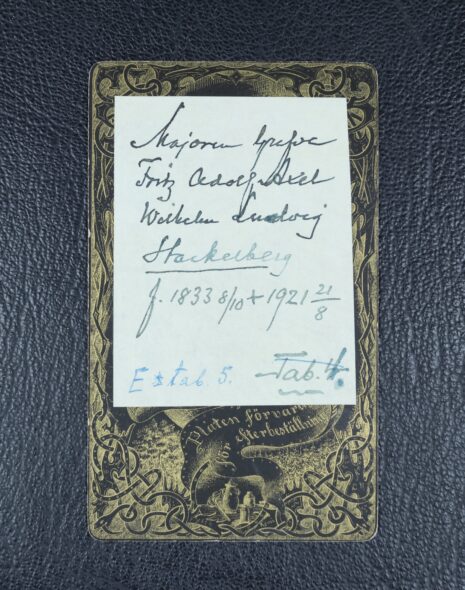 Majoren Grefve
Fritz Adolf Axel
Wilhelm Ludvig
Stackelberg
f. 1833 8/10 + 1921 21/8
Tab. 4.
Platen förvar
för Efterbeställnin